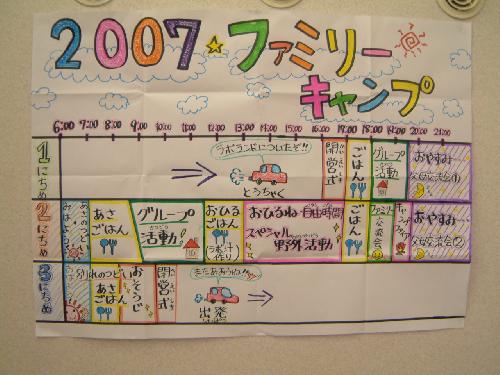 2007☆ファミリー
キャンプ
6:00 7:00 8:00 9:00 10:00 11:00 12:00 13:00 14:00 15:00 16:00 17:00 18:00 19:00 20:00 21:00
1にちめ
ラボランドについたぞ!!
とうちゃく
開営式
ごはん
グループ
活動
おやすみ
父母交流会①
2にちめ
あさ
ごはん
グループ
活動
おひる
ごはん
おひるね・自由時間
スペシャル
野外活動
ごはん
ファミリー
交流会
キャンプファイヤー
おやすみ…
父母交流会②
3にちめ
おわかれのつどい
あさ
ごはん
おそうじ
閉営式
またあおうね!!
出発